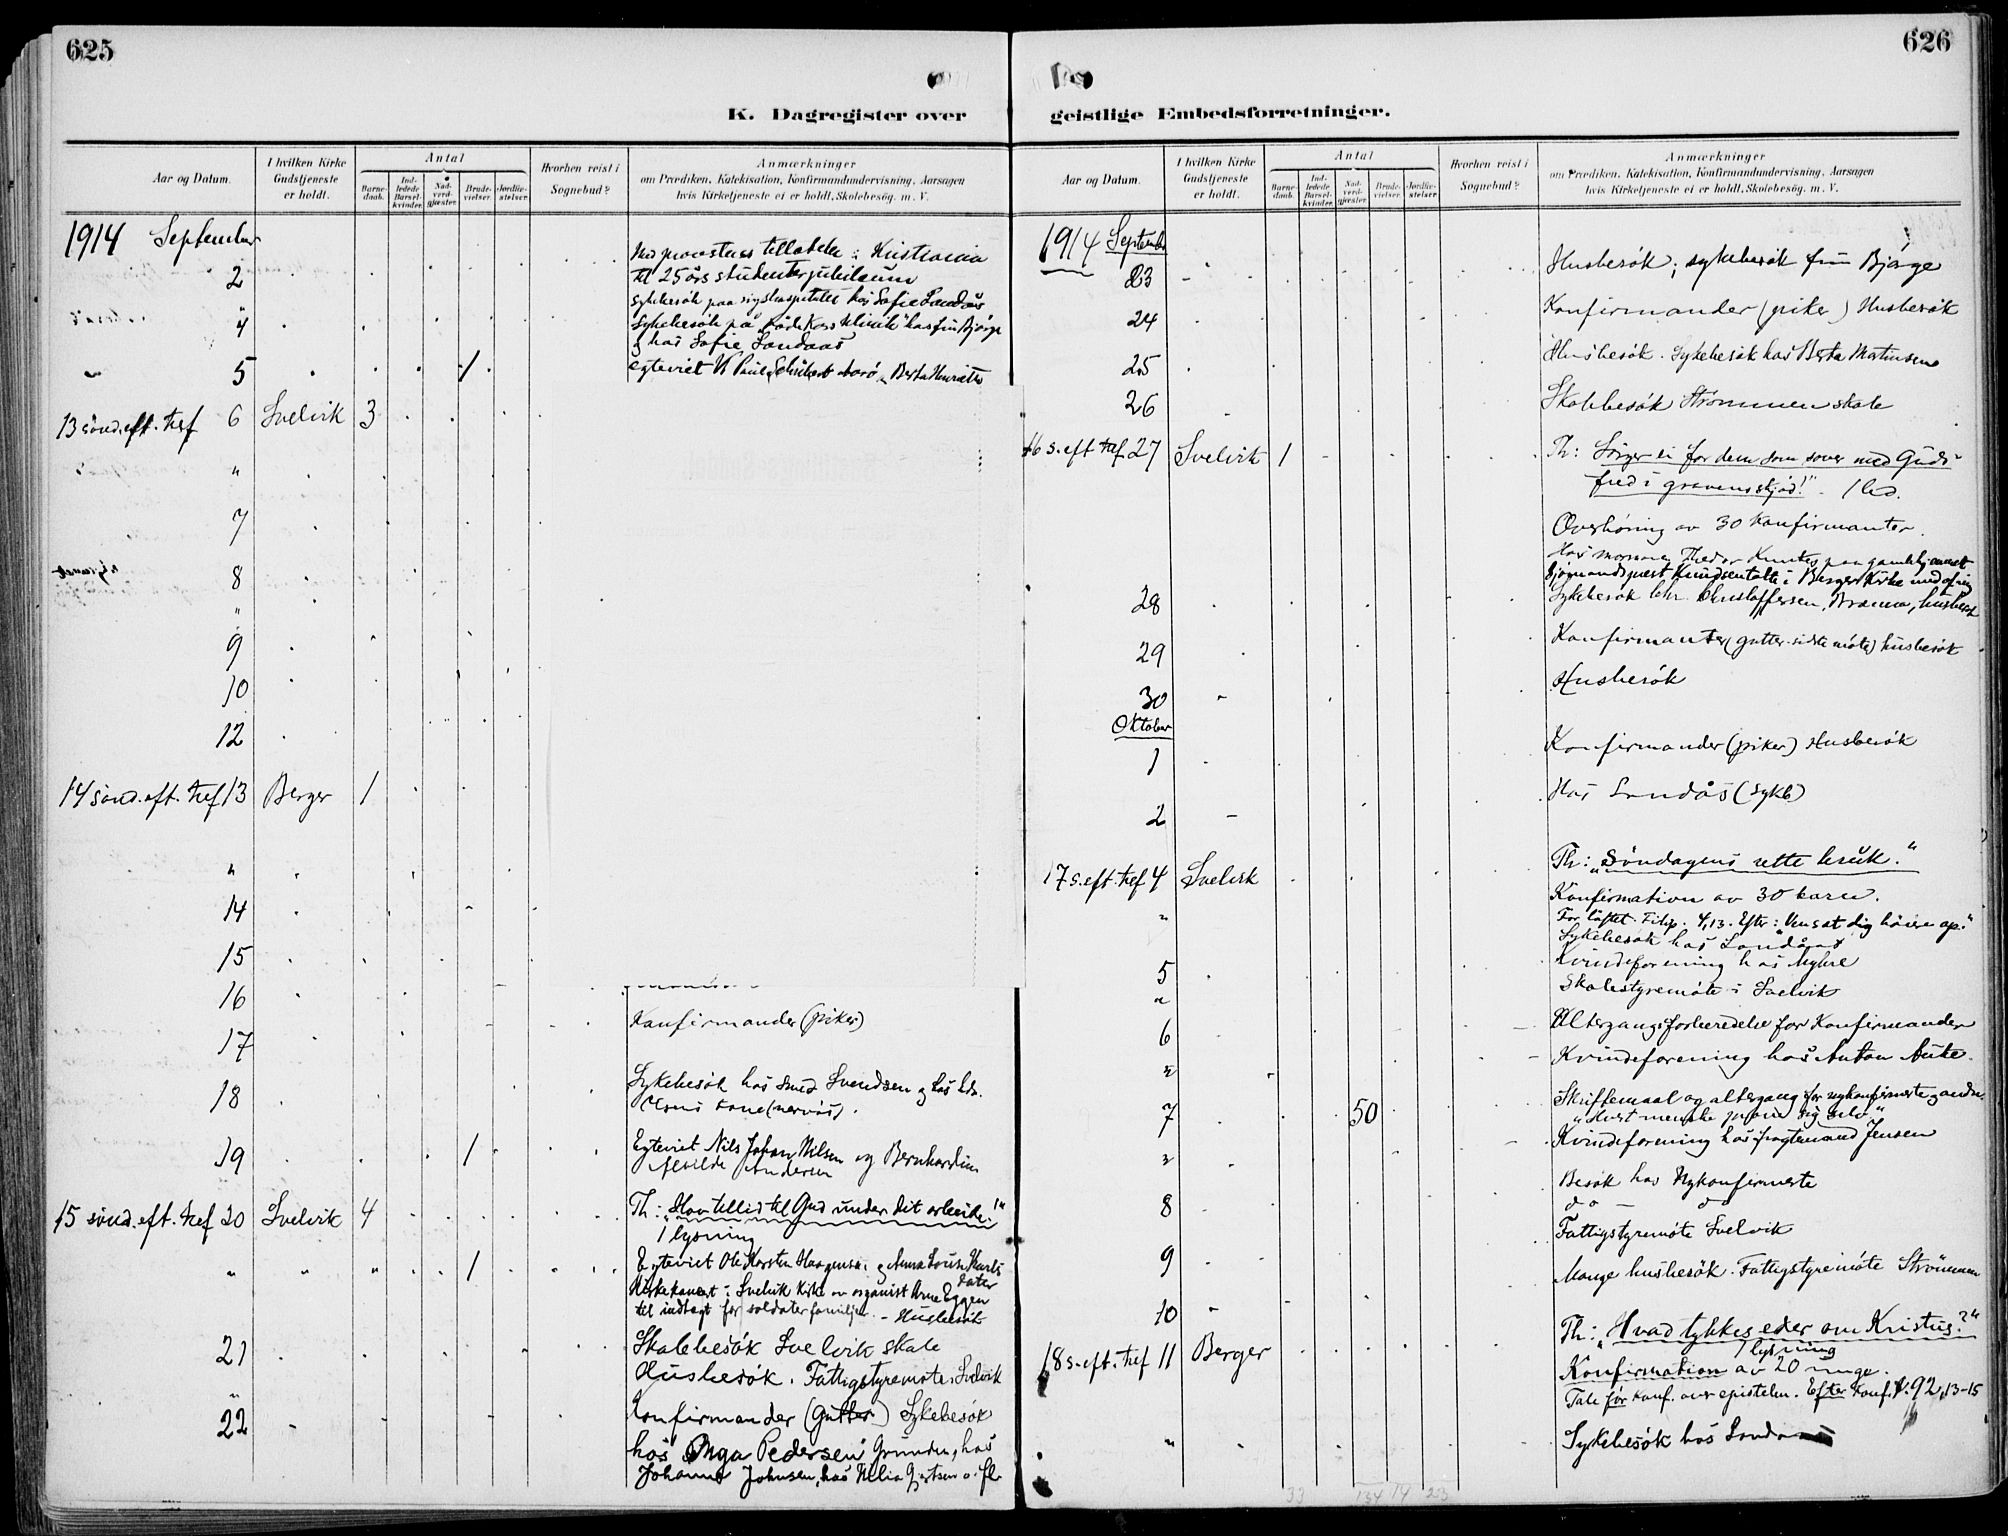 625
K. Dagregister over
Aar og Datum.
I hvilken Kirke Gudstjeneste er holdt.
Antal
Barne-daab.
Ind-ledede Barsel-kvinder.
Nad-verd-gjæster.
Brude-vielser.
Jordfæ-stelser.
Hvorhen reist i Sognebud?
Anmærkninger
om Prædiken, Katekisation, Konfirmandundervisning, Aarsagen
hvis Kirketjeneste ei er holdt, Skolebesøg. m. V.
1914 September
2 Med provstens tilladelse i Kristiania
til 25 års studenterjubilæum
sykebesök paa rigshospitalet hos Sofie Landås
4 Sykebesök på "Röde Kors Klinik" hos fru Björge
og hos Sofie Landaas
" 5 1 egteviet
13 sönd. eft. tref 6 Svelvik 3
"
7
8
"
9
10
12
14 sönd. eft. tref 13 Berger 1
"
14
15
16
17 Konfirmander (piker)
18 Sykebesök hos Smed Svendsen og hos
kone (nervös).
19 1 Egteviet Nils Johan Nilsen og Bernhardine
Alvilde Andersen
15 sönd. eft. tref 20 Svelvik 4 Th: "Hav tillid til Gud under dit arbeide."
1 lysning
" " " 1 Egteviet Ole Karsten Haagensen og Anna Louise Karls
dater
Kirkekonsert i Svelvik Kirke av organist Arne Eggen
til indtægt for soldaterfamiljer. - Husbesök
21 Skolebesök Svelvik skole
" Husbesök. Fattigstyremöte i Svelvik
22 Konfirmander (Gutter) Sykebesök
hos Inga Pedersen Grunden, hos
Johanne Johnsen, hos Helia Gjertsen o. fl.
626
geistlige Embedsforretninger.
Aar og Datum.
I hvilken Kirke Gudstjeneste er holdt.
Antal
Barne-daab.
Ind-ledede Barsel-kvinder.
Nad-verd-gjæster.
Brude-vielser.
Jordfæ-stelser.
Hvorhen reist i Sognebud?
Anmærkninger
om Prædiken, Katekisation, Konfirmandundervisning, Aarsagen
hvis Kirketjeneste ei er holdt, Skolebesøg. m. V.
1914 September
23 Husbesök; sykebesök fru Björge
24 Konfirmander (piker) Husbesök
25 Husbesök. Sykebesök hos Berta Martinsen
26 Skolebesök Strömmen skole
16 s. eft tref 27 Svelvik 1 Th: Sörger ei for dem som sover med Guds
fred i gravens skjöd!" - 1 lvs.
Overhöring av 30 Konfirmanter.
paa gamlehjemmet
Sjömandsprest Knudsen talte i Berger Kirke
28 Sykebesök Christoffersen, husbesök
29 Konfirmanter (gutter sidste möte) husbesök
30 Husbesök
Oktober
1 Konfirmander (piker) Husbesök
2 Hos Landås (sykb)
17 s. eft. tref 4 Svelvik Th: "Söndagens rette bruk."
" Konfirmation av 30 barn.
For löftet. Filip. 4,13. Efter: "Venset dig höiere op."
Sykebesök hos Landaas
5 Kvindeforening hos Myhre
" Skolestyremöte i Svelvik
6 Altergangsforberedelse for Konfirmander
" Kvindeforening hos Anton
7 50 Skriftemaal og altergang for nykonfirmerte og andre.
"Hvert menske pröve sig selv"
" Kvindeforening hos fragtemand Jensen
8 Besök hos Nykonfirmerte
do - do
9 Fattigstyremöte Svelvik
10 Mange husbesök. Fattigstyremöte Strömmen
18 s. eft. tref 11 Berger Th: "Hvad tykkes eder om Kristus?"
1 lysning
Konfirmation av 20 unge.
Tale för konf. over epistelen. Efter Konf. 92, 13-15
" Sykebesök hos Landaas
33 134 14 23